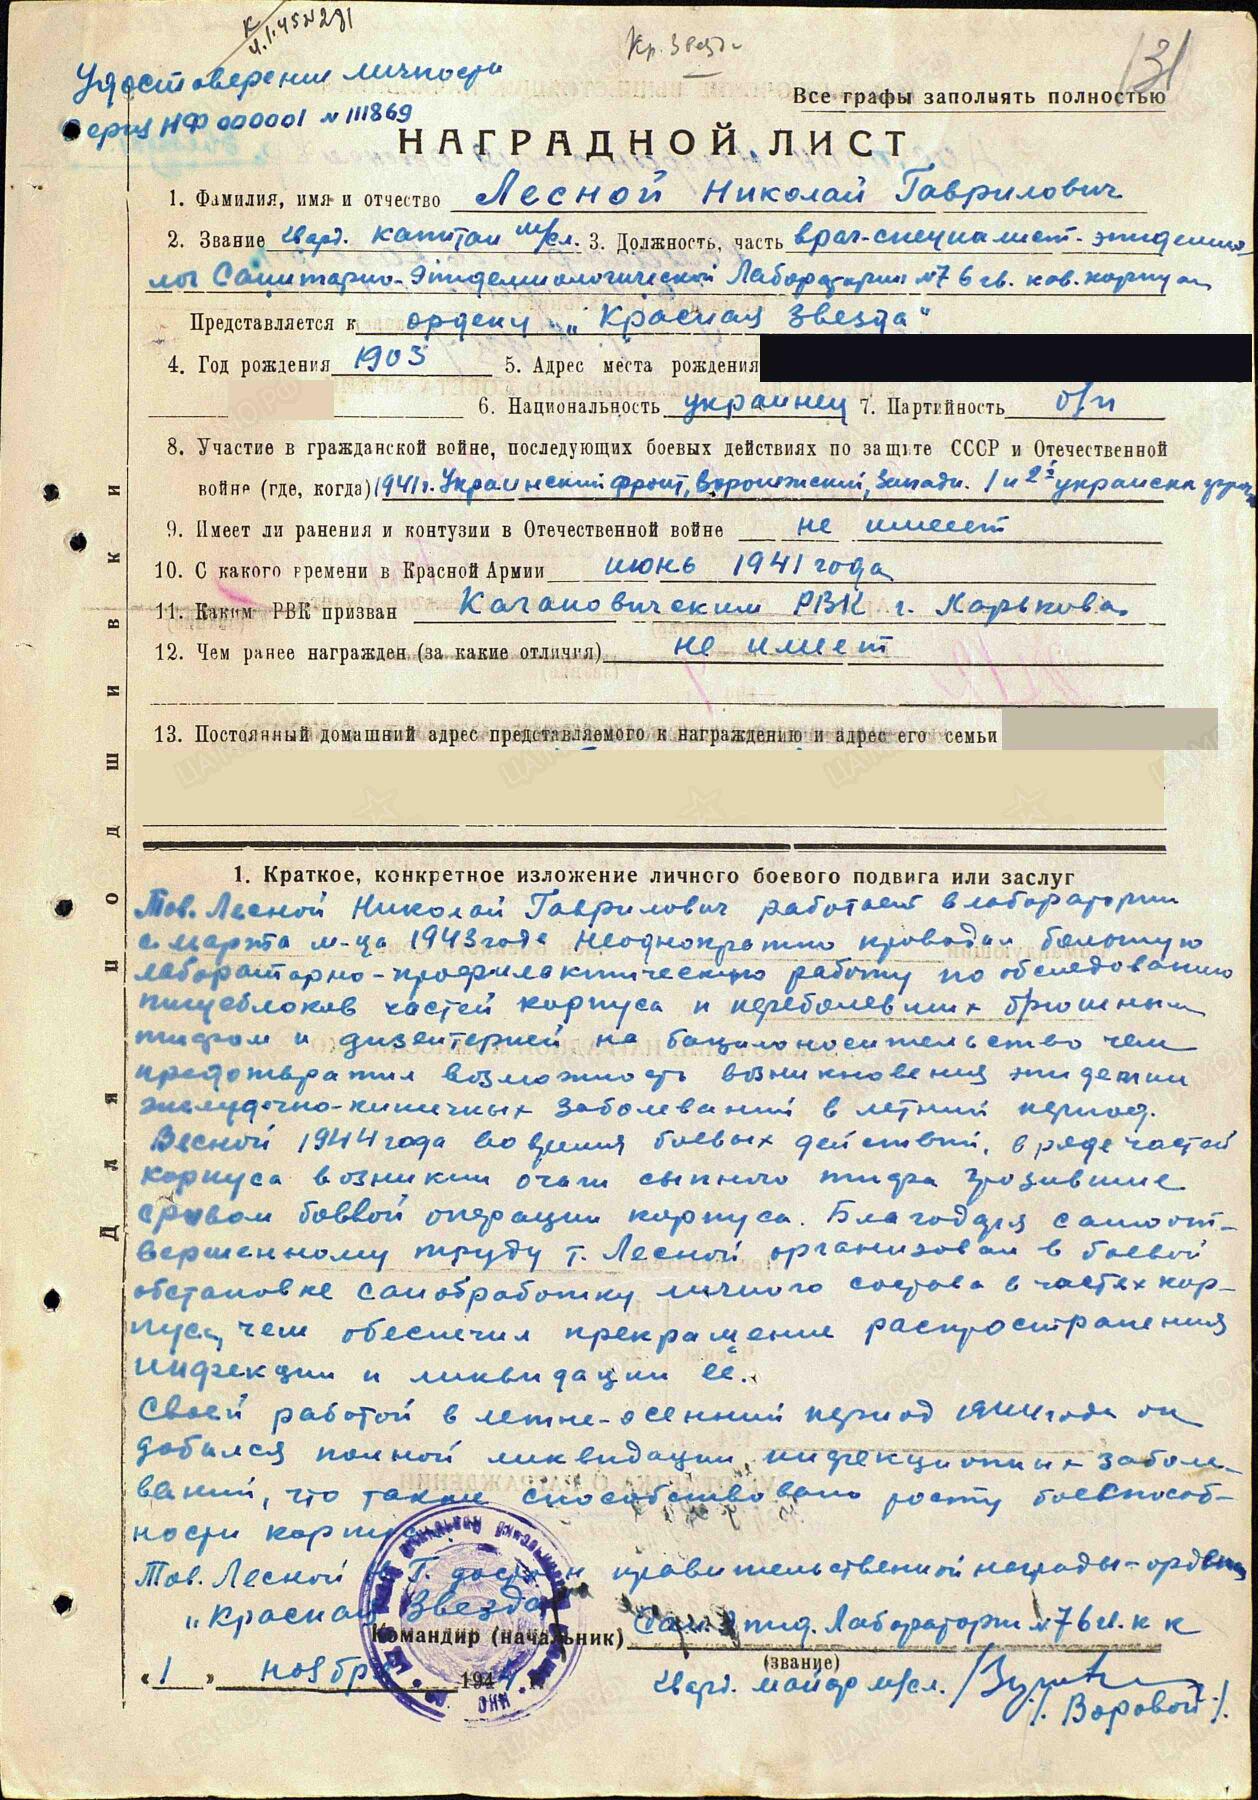 к
4.1.45 № 281
Кр. Звезд
131
Удостоверение личности
серия НФ 000001 № 111869
Все графы заполнять полностью
НАГРАДНОЙ ЛИСТ
1. Фамилия, имя и отчество Лесной Николай Гаврилович
2. Звание гвард. капитан м/сл. 3. Должность, часть врач-специалист-эпидемио
лог Санитарно-Эпидемиологической Лаборатории №7 6 гв. кав. корпуса
Представляется к ордену "Красная Звезда"
4. Год рождения 1903 5. Адрес места рождения
6. Национальность украинец 7. Партийность б/п
8. Участие в гражданской войне, последующих боевых действиях по защите СССР и Отечественной
войне (где, когда) 1941 г. Украинский фронт, Воронежский, Западн. 1 и 2й украинск
9. Имеет ли ранения и контузии в Отечественной войне не имеет
10. С какого времени в Красной Армии июнь 1941 года
11. Каким РВК призван Кагановическим РВК г. Харькова
12. Чем ранее награжден (за какие отличия) не имеет
13. Постоянный домашний адрес представляемого к награждению и адрес его семьи
Для подшивки
1. Краткое, конкретное изложение личного боевого подвига или заслуг
Тов. Лесной Николай Гаврилович работает в лаборатории
с марта м-ца 1943 года неоднократно проводил большую
лабораторно-профилактическую работу по обследованию
пищеблоков частей корпуса и переболевших брюшным
тифом и дизентерией на бацилоносительство чем
предотвратил возможность возникновения эпидемии
желудочно-кишечных заболеваний в летний период.
Весной 1944 года во время боевых действий, в ряде частей
корпуса возникли очаги сыпного тифа грозившие
срывом боевой операции корпуса. Благодаря самоот-
верженному труду т. Лесной организовал в боевой
обстановке санобработку личного состава в частях кор-
пуса, чем обеспечил прекращение распространения
инфекции и ликвидации её.
Своей работой в летне-осенний период 1944 года он
добился полной ликвидации инфекционных заболе-
ваний, что также способствовало росту боеспособ-
ности корпуса
Тов. Лесной Г. достоин правительственной награды-ордена
"Красная Звезда"
Командир (начальник) Сан. Эпид. Лаборатории №7 6 гв. к к
(звание)
"1" ноября 1944 г. гвард. майор м/сл.
/Воровой/.